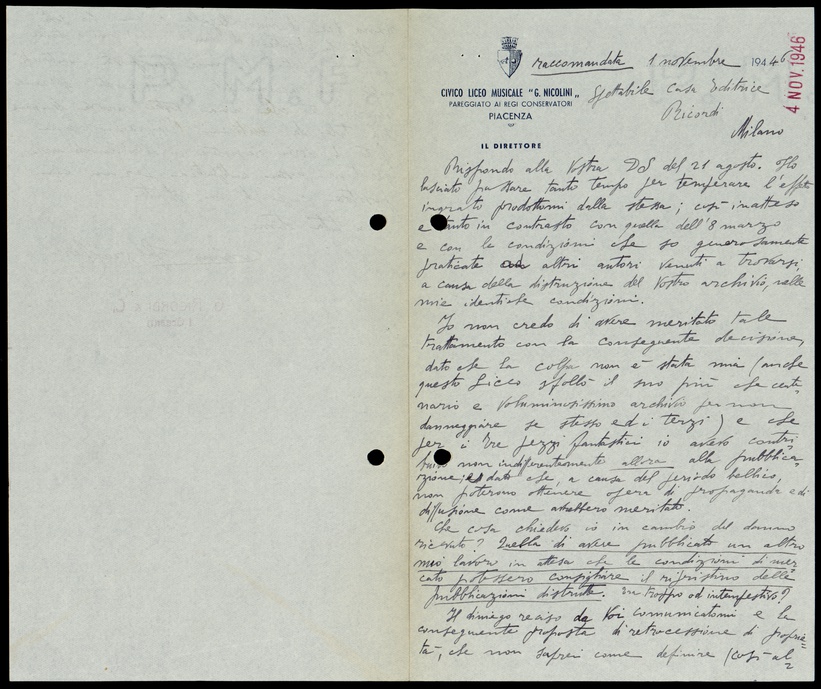 raccomandata 1 novembre 1946
4 NOV. 1946
CIVICO LICEO MUSICALE "G. NICOLINI"
PAREGGIATO AI REGI CONSERVATORI
PIACENZA
IL DIRETTORE
Spettabile Casa Editrice
Ricordi
Milano
Rispondo alla Vostra DS del 21 agosto. Ho
lasciato passare tanto tempo per temperare l'effetto
ingrato prodottomi dalla stessa; così inatteso
e tanto in contrasto con quella dell'8 marzo
e con le condizioni che so generosamente
praticate ad altri autori venuti a trovarsi,
a causa della distruzione del Vostro archivio, nelle
mie identiche condizioni.
Io non credo di avere meritato tale
trattamento con la conseguente decisione,
dato che la colpa non è stata mia (anche
questo Liceo sfollò il suo più che cente
nario e voluminosissimo archivio per non
danneggiare se stesso ed i terzi) e che
per i Tre pezzi fantastici io avevo contri
buito non indifferentemente allora alla pubblica=
zione; dato che, a causa del periodo bellico,
non poterono ottenere opera di propaganda e di
diffusione come avrebbero meritato.
Che cosa chiedevo io in cambio del danno
ricevuto? Quella di avere pubblicato un altro
mio lavoro in attesa che le condizioni di mer
cato potessero consigliare il ripristino delle
pubblicazioni distrutte. Era troppo od intempestivo?
Il diniego reciso da Voi comunicatomi e la
conseguente proposta di retrocessione di proprie
tà, che non saprei come definire (così al=